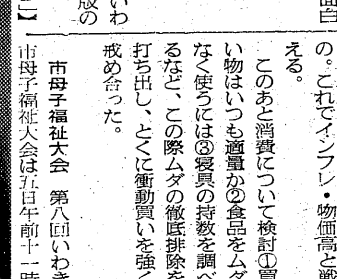 の。これでインフレ・物価高と戦
える。
このあと消費について検討①買
い物はいつも適量か②食品をムダ
なく使うには③寝具の持数を調べ
るなど、この際ムダの徹底排除を
打ち出し、とくに衝動買いを強く
戒め合った。
市母子福祉大会 第八回いわき
市母子福祉大会は五日午前十一時
いわ
版の